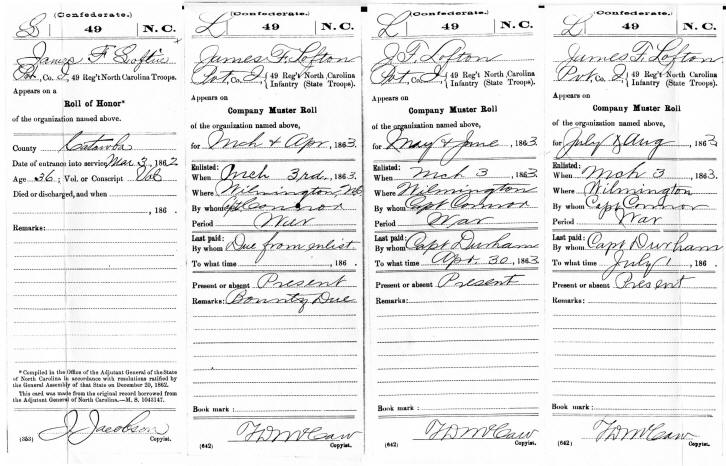 (Confederate.)
S 49 N. C.
James F Loftin
Pvt, Co. I, 49 Reg't North Carolina Troops.
Appears on a
Roll of Honor*
of the organization named above.
County Catawba
Date of entrance into service Mar 3, 1862
Age 36; Vol. or Conscript Vol
Died or discharged, and when
, 186 .
Remarks:
* Compiled in the Office of the Adjutant General of the State
of North Carolina in accordance with resolutions ratified by
the General Assembly of that State on December 20, 1862.
This card was made from the original record borrowed from
the Adjutant General of North Carolina.—M. S. 1043147.
J Jacobson
(353) Copyist.
(Confederate.)
L 49 N. C.
James F. Lofton
Pvt, Co. I, 49 Reg't North Carolina
Infantry (State Troops).
Appears on
Company Muster Roll
of the organization named above,
for Mch & Apr, 1863.
Enlisted:
When Mch 3rd, 1863.
Where Wilmington, NC
By whom Connor
Period War
Last paid:
By whom Due from enlist
To what time , 186 .
Present or absent Present
Remarks: Bounty Due
Book mark:
F D McCaw
(642) Copyist.
(Confederate.)
L 49 N. C.
J F. Lofton
Pvt, Co. I, 49 Reg't North Carolina
Infantry (State Troops).
Appears on
Company Muster Roll
of the organization named above,
for May & June, 1863.
Enlisted:
When Mch 3, 1863.
Where Wilmington
By whom Capt Connor
Period War
Last paid:
By whom Capt Durham
To what time Apr. 30, 1863
Present or absent Present
Remarks:
Book mark:
F D McCaw
(642) Copyist.
(Confederate.)
L 49 N. C.
James F. Lofton
Pvt, Co. I, 49 Reg't North Carolina
Infantry (State Troops).
Appears on
Company Muster Roll
of the organization named above,
for July & Aug, 1863
Enlisted:
When Mch 3, 1863.
Where Wilmington
By whom Capt Connor
Period War
Last paid:
By whom Capt Durham
To what time July 1, 186 .
Present or absent Present
Remarks:
Book mark:
F D McCaw
(642) Copyist.